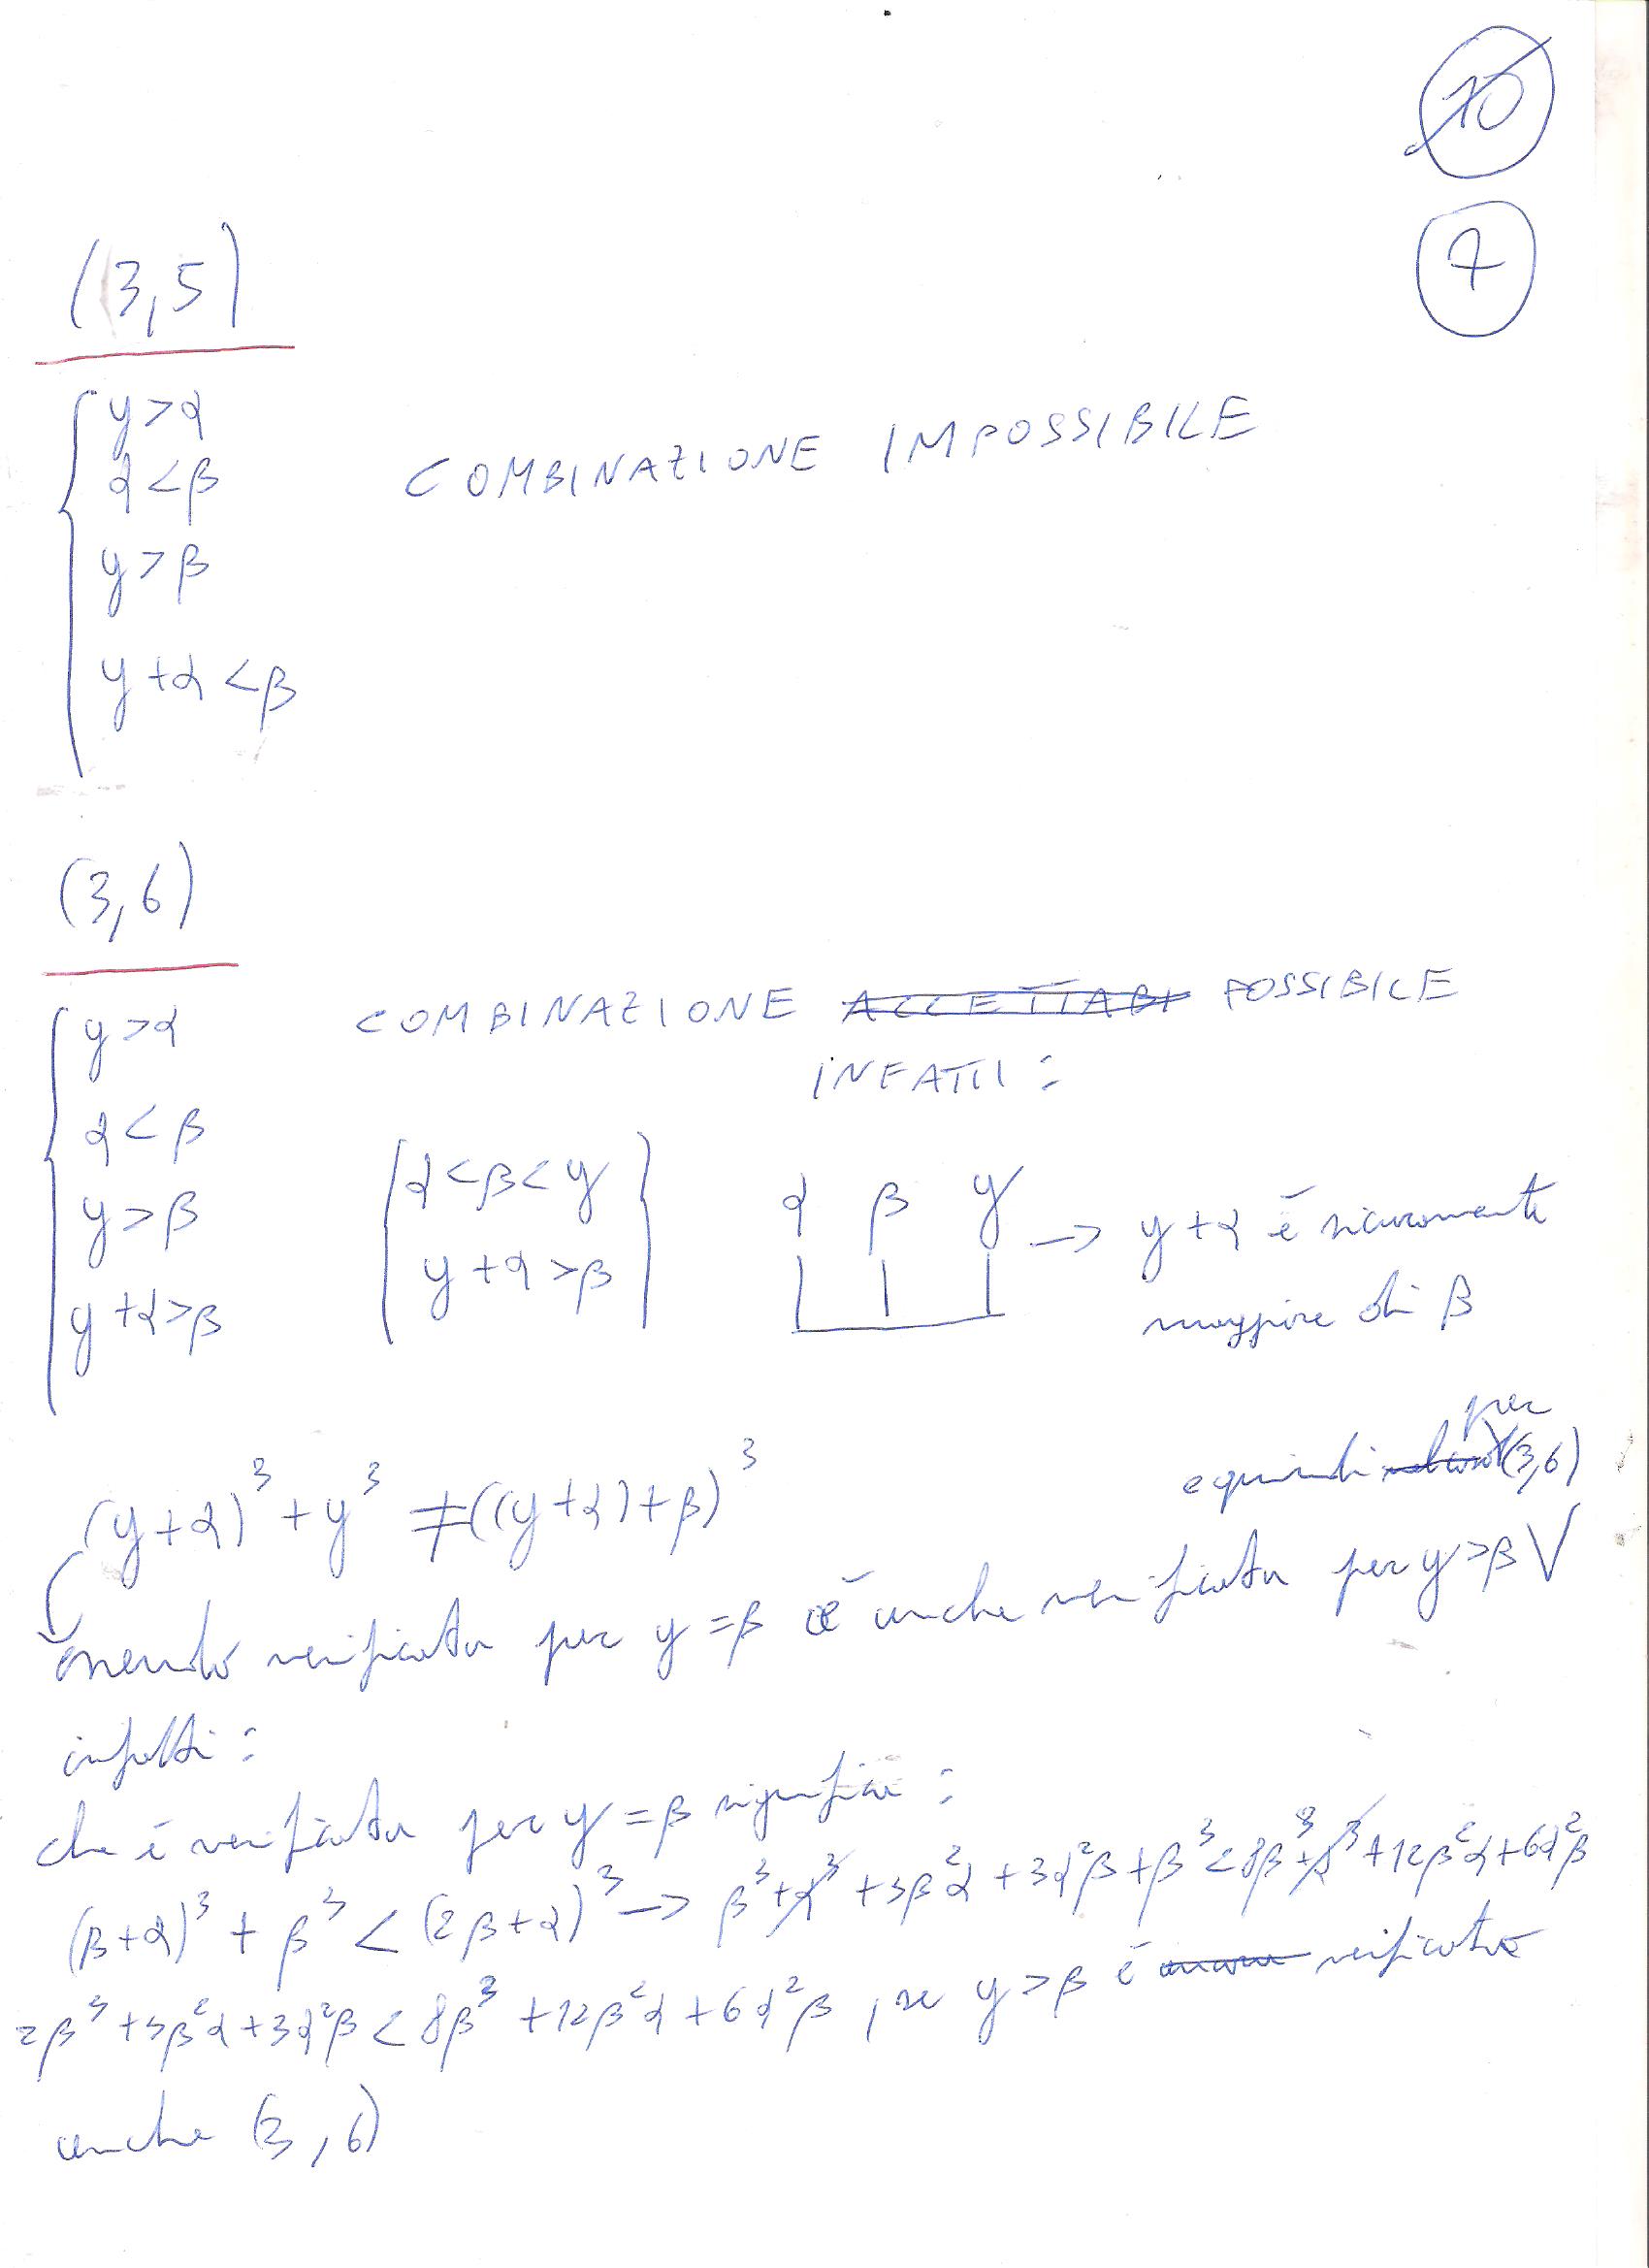 10
7
(3,5)
y>α
α<β
y>β
y+α<β
COMBINAZIONE IMPOSSIBILE
(3,6)
y>α
α<β
y>β
y+α>β
COMBINAZIONE ACCETTABI POSSIBILE
INFATTI:
α<β<y
y+α>β
α β y
→ y+α è sicuramente
maggiore di β
(y+α)³+y³ ≠ ((y+α)+β)³
e quindi per (3,6)
essendo verificata per y=β è anche verificata per y>β V
infatti:
che è verificata per y=β significa:
(β+α)³+β³<(2β+α)³ → β³+α³+3β²α+3α²β+β³<8β³+α³+12β²α+6α²β
2β³+3β²α+3α²β<8β³+12β²α+6α²β, se y>β è ancora verificata
anche (3,6)